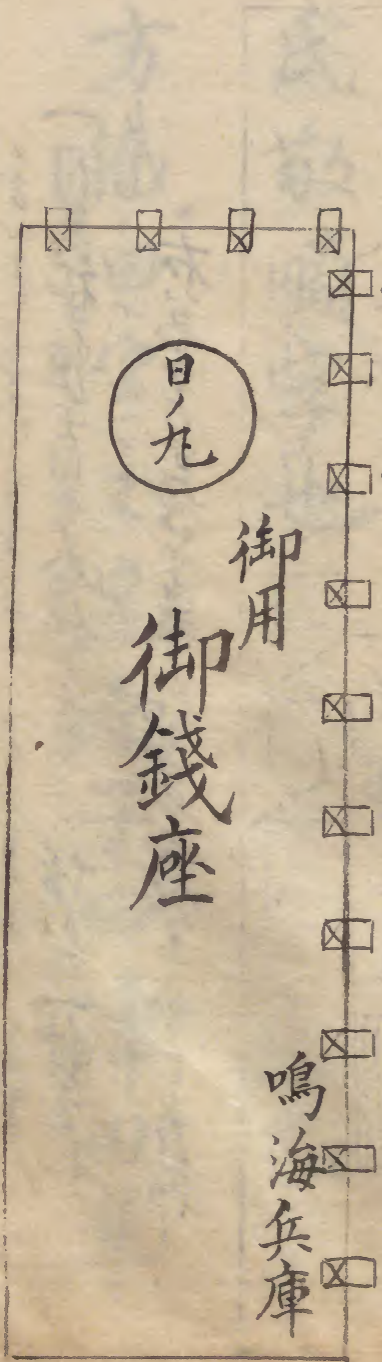 日ノ丸
御用
御錢座
鳴海兵庫